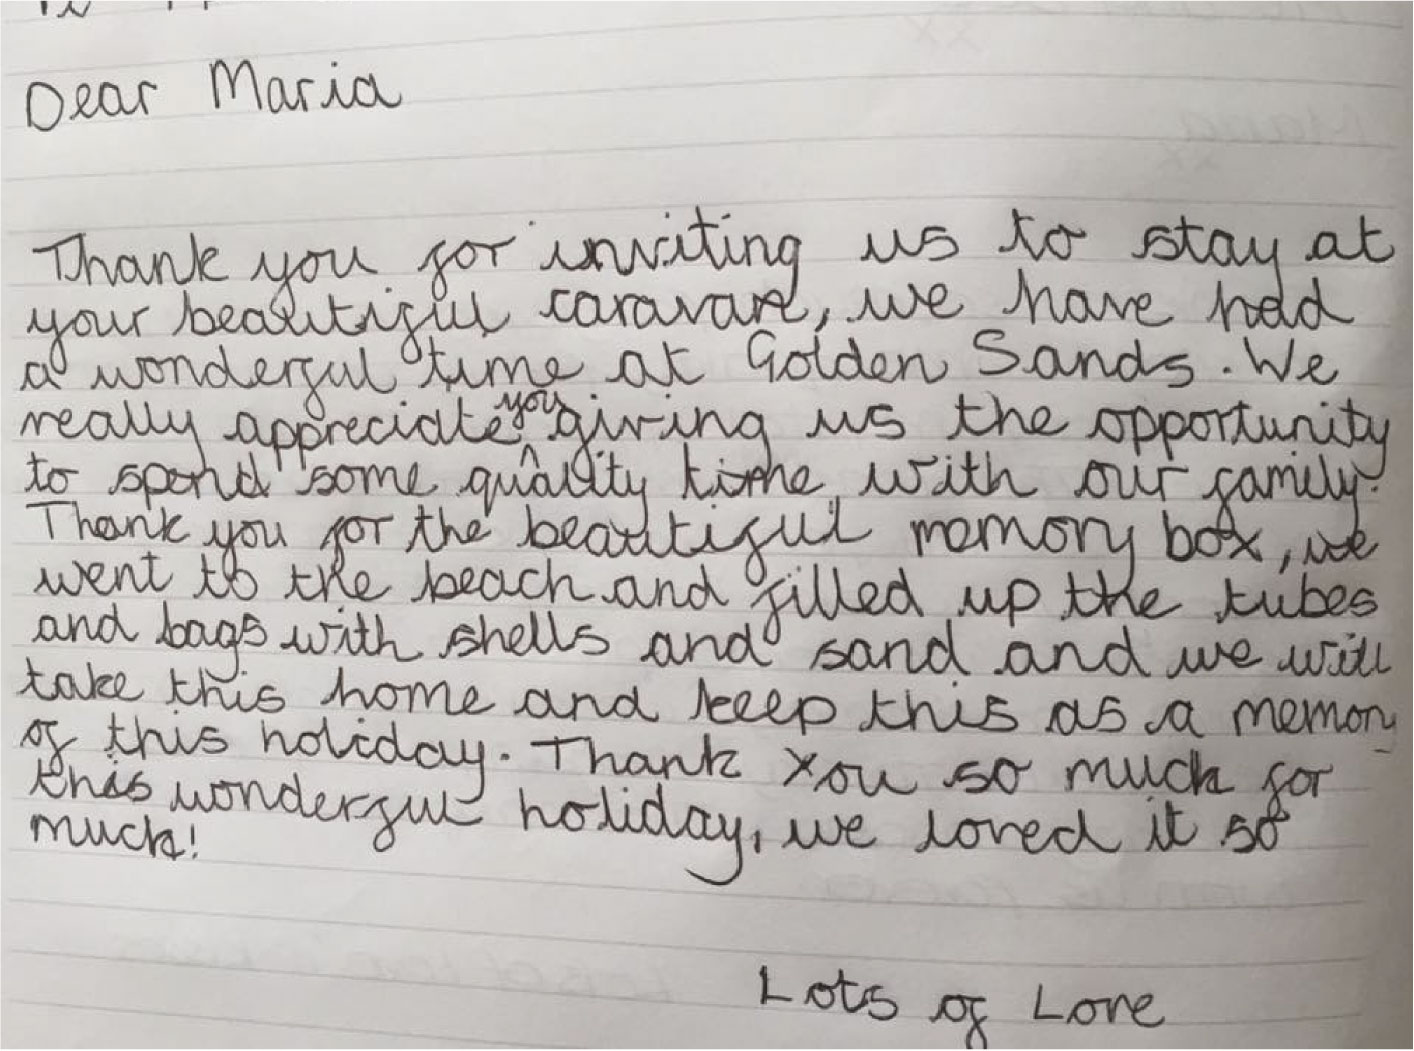 Dear Maria
Thank you for inviting us to stay at
your beautiful caravan, we have had
a wonderful time at Golden Sands. We
really appreciate you giving us the opportunity
to spend some quality time with our family.
Thank you for the beautiful memory box, we
went to the beach and filled up the tubes
and bags with shells and sand and we will
take this home and keep this as a memory
of this holiday. Thank you so much for
this wonderful holiday, we loved it so
much!
Lots of Love